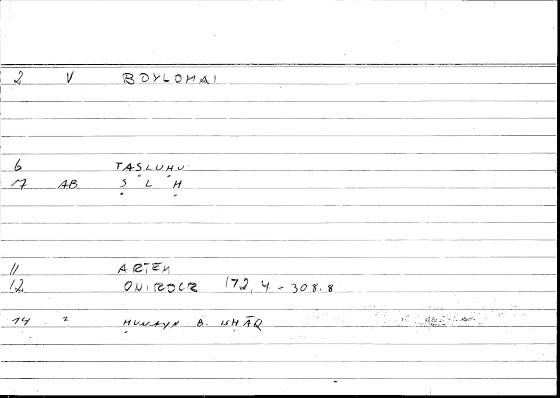 2 V BOYLOMAI
6 TASLUHU
7 AB Ṣ L Ḥ
11 ARTEM
12 ONIROCR 172,4 - 308.8
14 2 ḤUNAYN B. ISḤĀQ